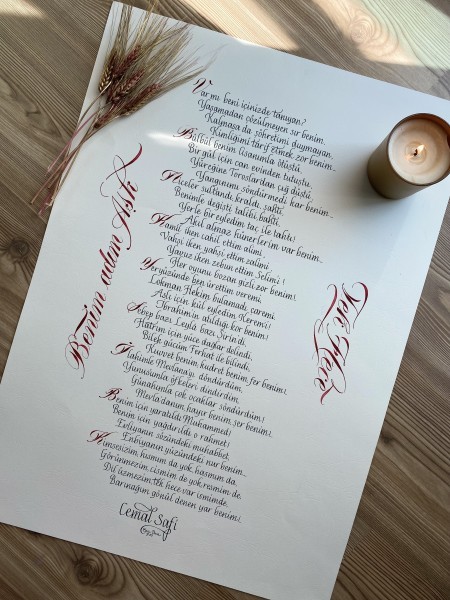 Benim adım Aşk
Var mı beni içinizde tanıyan?
Yaşanmadan çözülmeyen sır benim.
Kalmasa da şöhretimi duymayan,
Kimliğimi târif etmek zor benim...
Bülbül benim lisanımla ötüştü.
Bir gül için can evinden tutuştu.
Yüreğine Toroslardan çığ düştü.
Yangınımı söndürmedi kar benim...
Niceler sultandı, kraldı, şahtı.
Benimle değişti talihi bahtı,
Yerle bir eyledim taç ile tahtı,
Akıl almaz hünerlerim var benim...
Kamil iken cahil ettim alimi,
Vahşi iken yahşi ettim zalimi,
Yavuz iken zebun ettim Selimi!
Her oyunu bozan gizli zor benim!
Yeryüzünde ben ürettim veremi.
Lokman Hekim bulamadı çaremi
Aslı için kül eyledim Keremi!
İbrahimin atıldığı kor benim!
Sebep bazı Leyla bazı Şirindi.
Hatrım için yüce dağlar delindi.
Bilek gücüm Ferhat ile bilindi.
Kuvvet benim, kudret benim, fer benim!
İlahimle Mevlana'yı döndürdüm.
Yunusumla öfkeleri dindirdim.
Günahımla çok ocaklar söndürdüm!
Mevla'danım, hayır benim, şer benim.
Benim için yaratıldı Muhammed!
Benim için yağdırıldı o rahmet!
Evliyanın sözündeki muhabbet,
Enbiyanın yüzündeki nur benim...
Kimsesizim, hısmım da yok hasmım da,
Görünmezim, cismim de yok resmim de,
Dil üzmezim, tek hece var ismimde,
Barınağım gönül denen yer benim!
Cemal Safi
Tek Hece